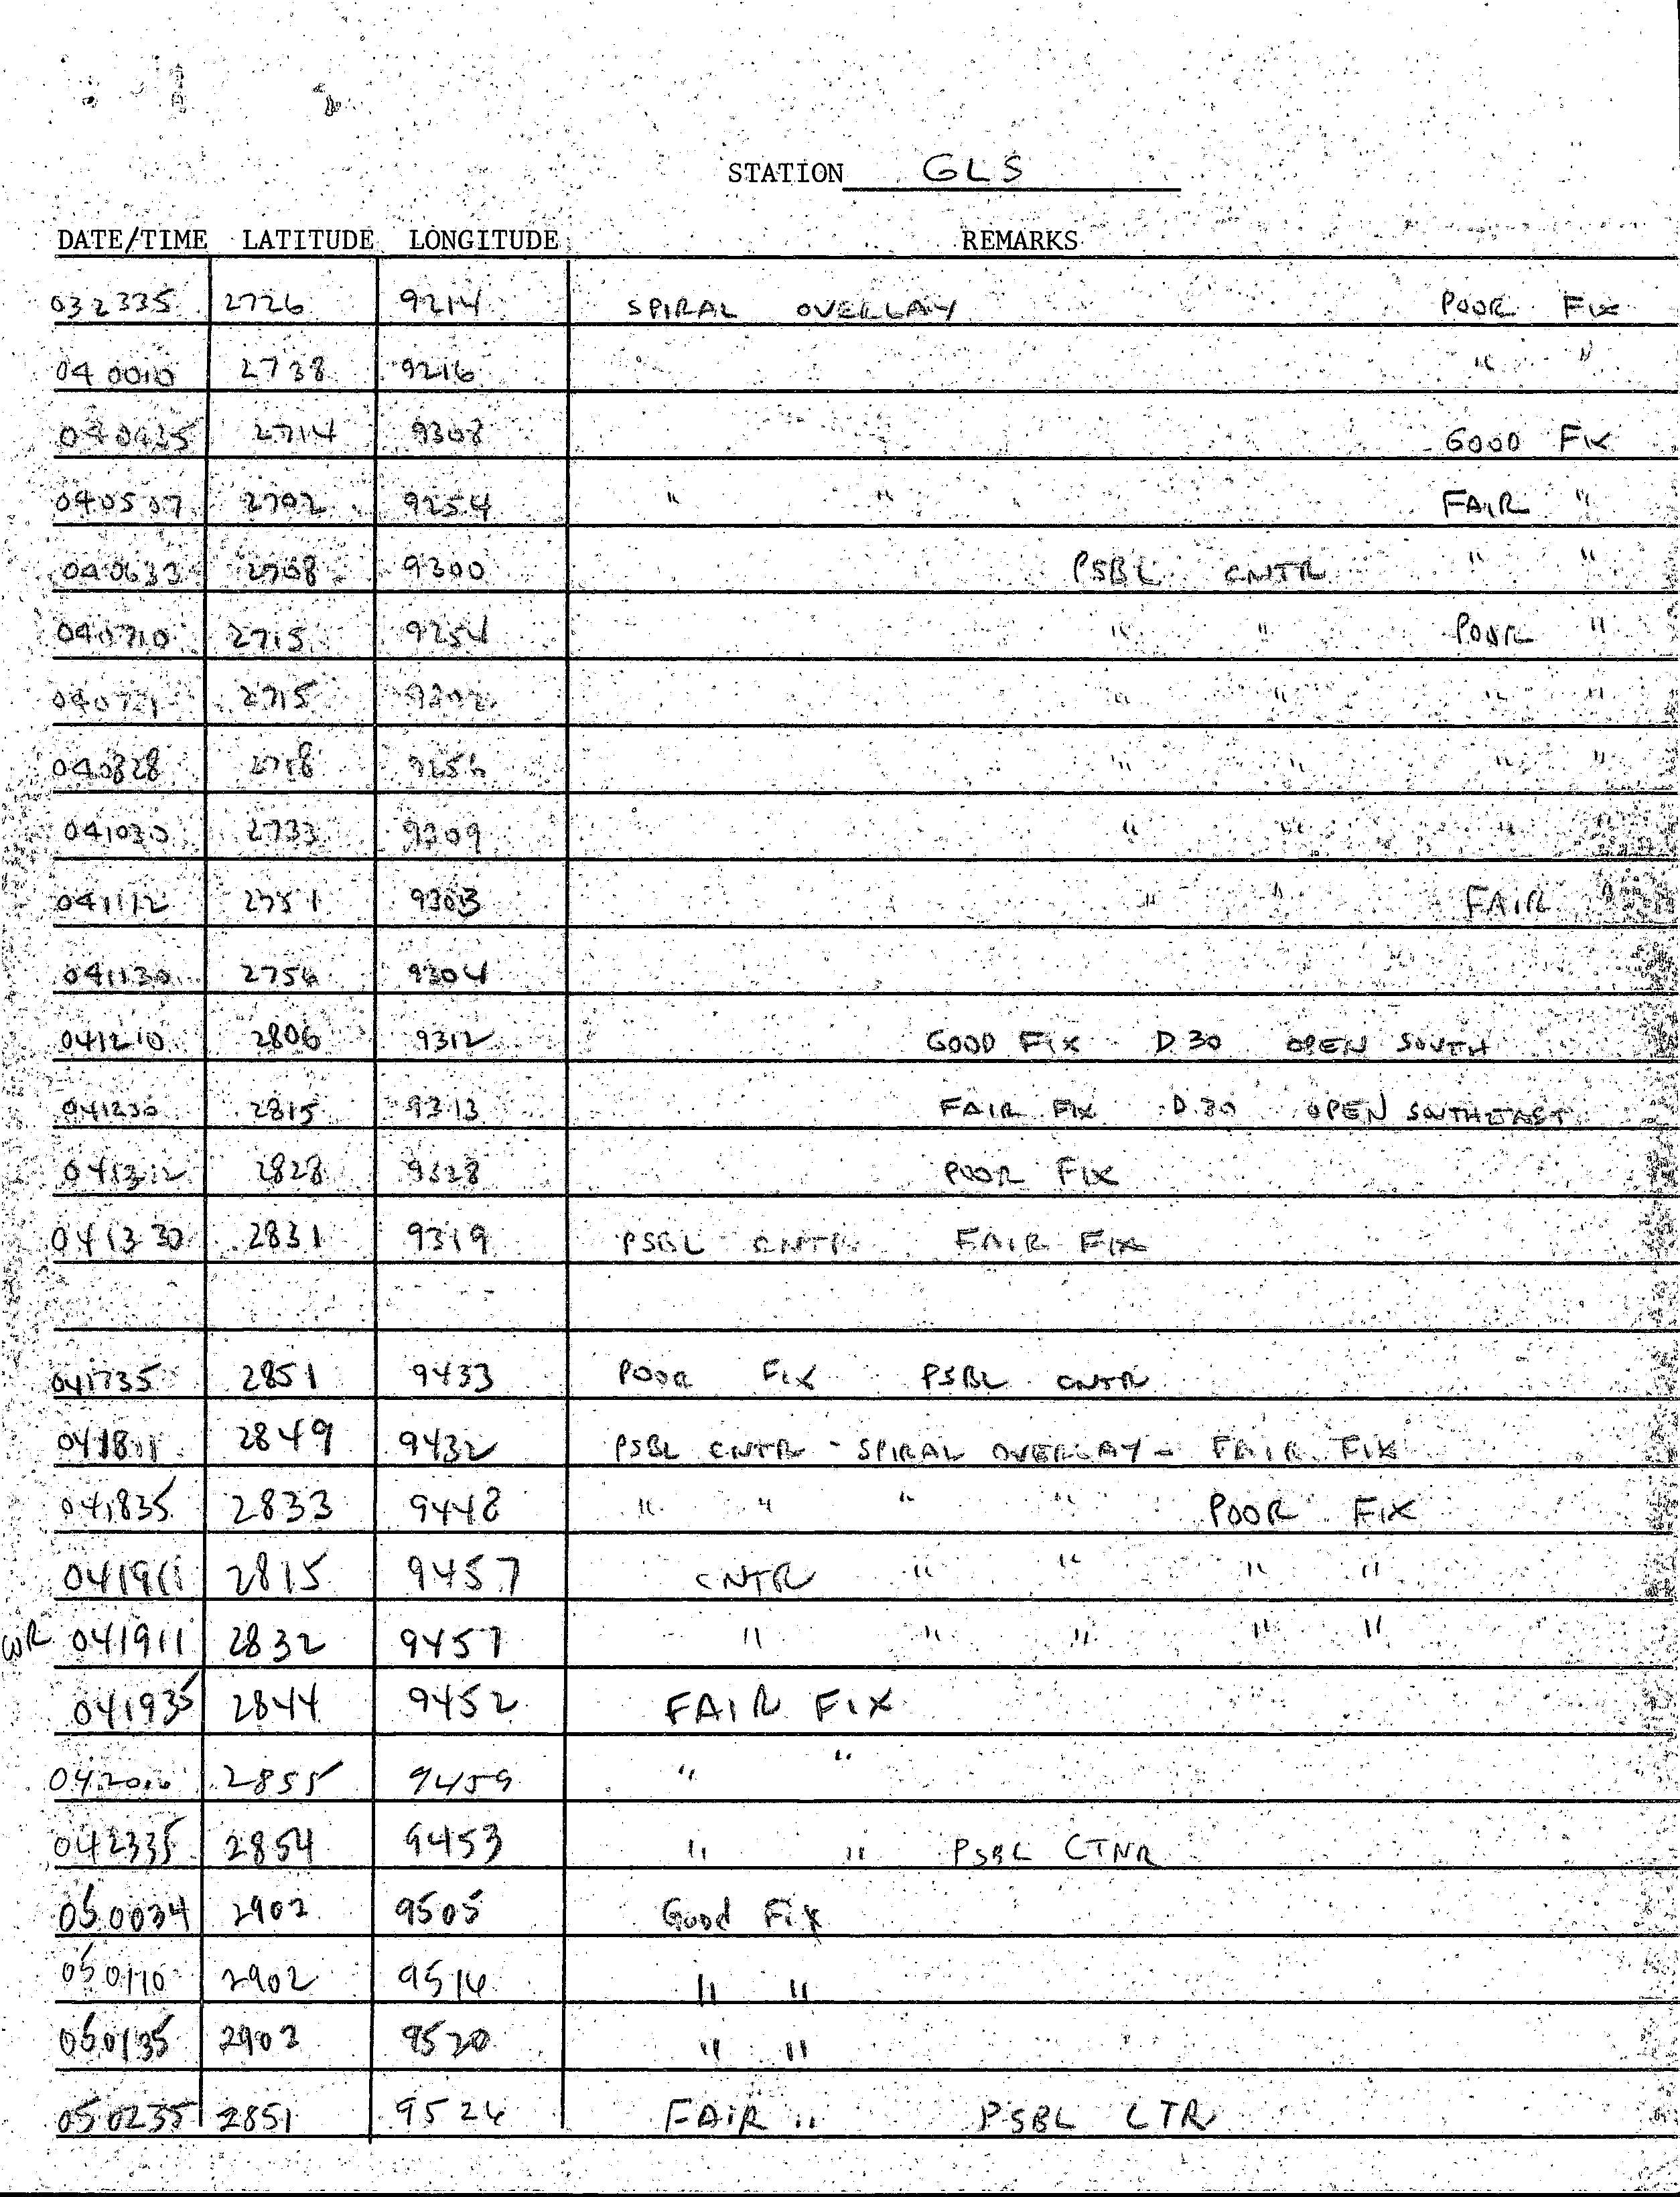 STATION GLS
DATE/TIME LATITUDE LONGITUDE REMARKS
032335 2726 9214 SPIRAL OVERLAY POOR FIX
040010 2738 9216 " "
040435 2714 9308 GOOD FIX
040507 2702 9254 " " FAIR "
040633 2708 9300 PSBL CNTR " "
040710 2715 9254 " " POOR "
040721 2715 9302 " " " "
040828 2718 9256 " " " "
041030 2733 9309 " " " "
041112 2751 9303 " " FAIR "
041130 2756 9304
041210 2806 9312 GOOD FIX D 30 OPEN SOUTH
041230 2815 9313 FAIR FIX D 30 OPEN SOUTHEAST
041312 2828 9328 POOR FIX
041330 2831 9319 PSBL CNTR FAIR FIX
041735 2851 9433 POOR FIX PSBL CNTR
041811 2849 9432 PSBL CNTR - SPIRAL OVERLAY - FAIR FIX
041835 2833 9448 " " " " POOR FIX
041911 2815 9457 CNTR " " " "
WR 041911 2832 9457 " " " " "
041935 2844 9452 FAIR FIX
2855 9459 " "
042335 2854 9453 " " PSBL CTNR
050034 2902 9505 Good Fix
050110 2902 9516 " "
050135 2903 9520 " "
050235 2851 9526 FAIR " PSBL CTR